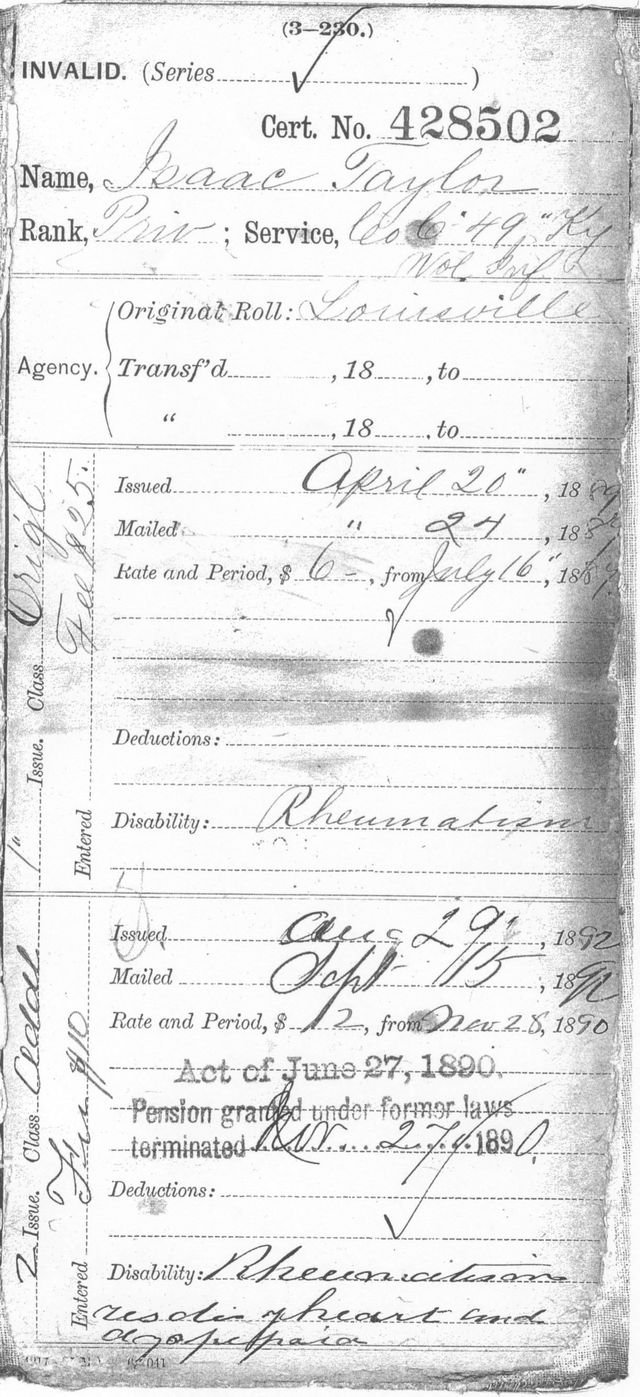 (3–230.)
INVALID. (Series )
Cert. No. 428502
Name, Isaac Taylor
Rank, Priv ; Service, Co C 49" Ky
Vol Inf
Agency.
Original Roll: Louisville
Transf'd , 18 , to
" , 18 , to
1" Issue. Class Origl
Entered Fee $25.
Issued April 20" , 1889
Mailed " 24 , 188
Rate and Period, $ 6 – , from July 16" , 1887.
Deductions:
Disability: Rheumatism
2 Issue. Class Addl
Entered Fee $10
Issued Aug 29" , 1892
Mailed Sept 15 , 1892
Rate and Period, $ 12 , from Nov 28, 1890
Act of June 27, 1890.
Pension granted under former laws
terminated Nov. 27, 1890.
Deductions:
Disability: Rheumatism
res dis of heart and
dyspepsia